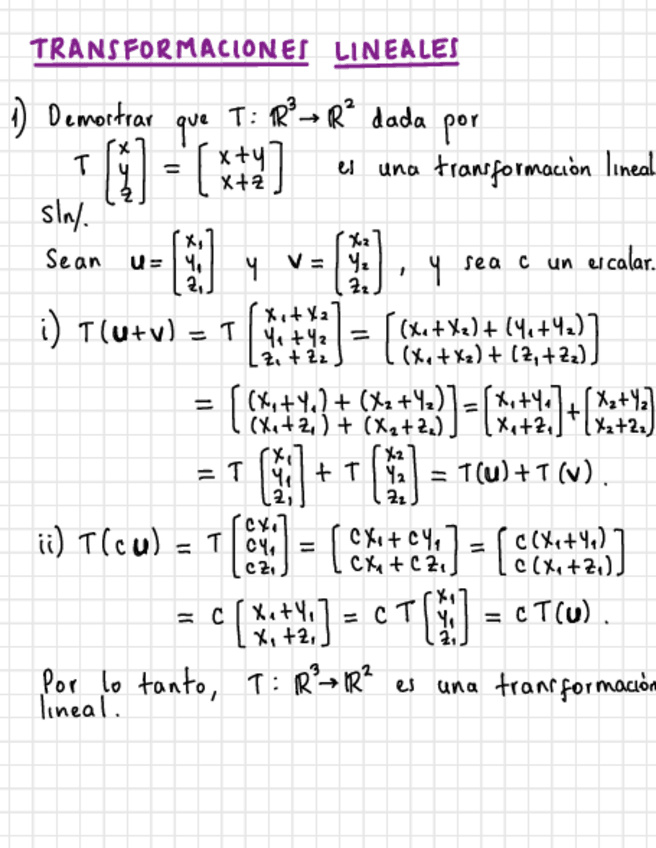 TRANSFORMACIONES LINEALES
1) Demostrar que T: ℝ³→ℝ² dada por
T [x y z] = [x+y x+z] es una transformación lineal
sln/.
Sean u = [x₁ y₁ z₁] y v = [x₂ y₂ z₂], y sea c un escalar.
i) T(u+v) = T [x₁+x₂ y₁+y₂ z₁+z₂] = [(x₁+x₂)+(y₁+y₂) (x₁+x₂)+(z₁+z₂)]
= [(x₁+y₁)+(x₂+y₂) (x₁+z₁)+(x₂+z₂)] = [x₁+y₁ x₁+z₁] + [x₂+y₂ x₂+z₂]
= T [x₁ y₁ z₁] + T [x₂ y₂ z₂] = T(u)+T(v).
ii) T(cu) = T [cx₁ cy₁ cz₁] = [cx₁+cy₁ cx₁+cz₁] = [c(x₁+y₁) c(x₁+z₁)]
= c [x₁+y₁ x₁+z₁] = cT [x₁ y₁ z₁] = cT(u).
Por lo tanto, T: ℝ³→ℝ² es una transformación
lineal.